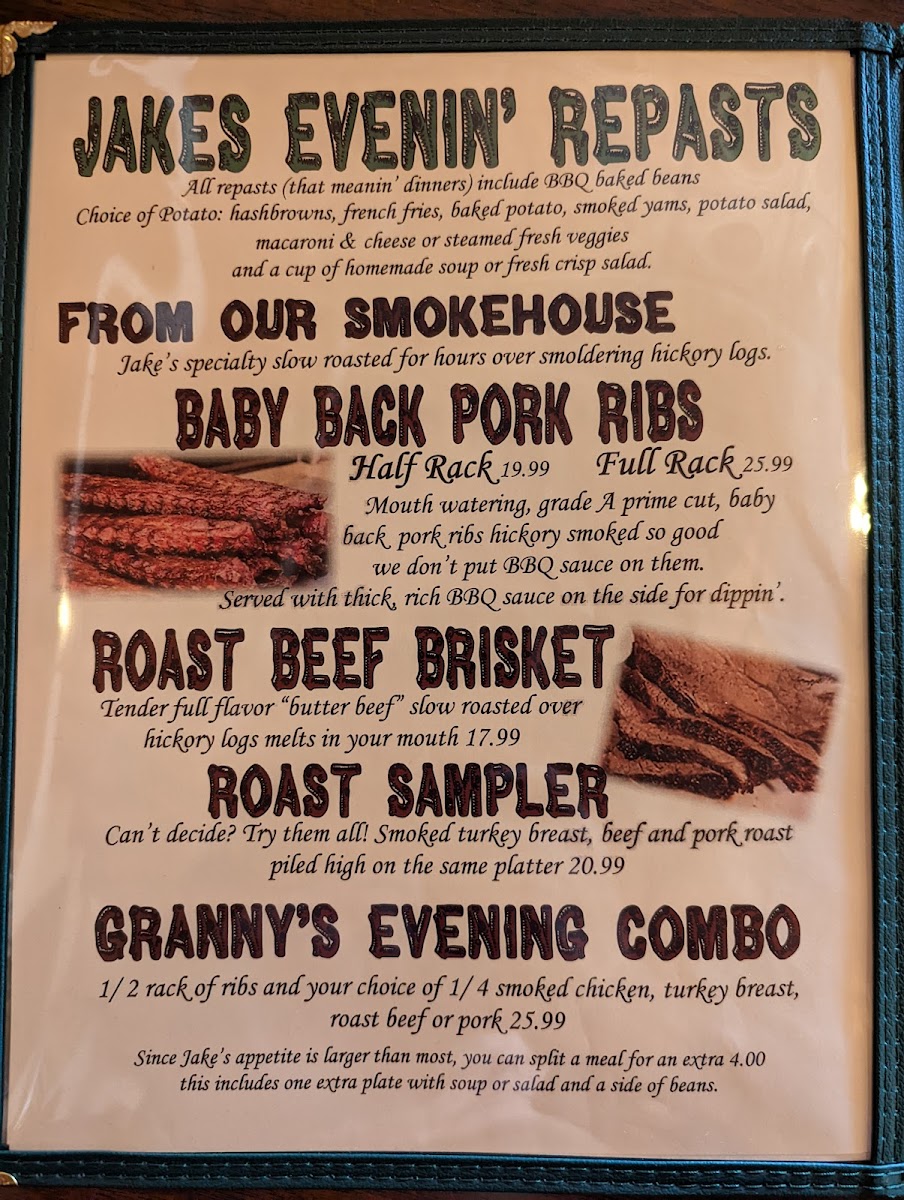 JAKES EVENIN' REPASTS
All repasts (that meanin' dinners) include BBQ baked beans
Choice of Potato: hashbrowns, french fries, baked potato, smoked yams, potato salad,
macaroni & cheese or steamed fresh veggies
and a cup of homemade soup or fresh crisp salad.
FROM OUR SMOKEHOUSE
Jake's specialty slow roasted for hours over smoldering hickory logs.
BABY BACK PORK RIBS
Half Rack 19.99 Full Rack 25.99
Mouth watering, grade A prime cut, baby
back pork ribs hickory smoked so good
we don't put BBQ sauce on them.
Served with thick, rich BBQ sauce on the side for dippin'.
ROAST BEEF BRISKET
Tender full flavor "butter beef" slow roasted over
hickory logs melts in your mouth 17.99
ROAST SAMPLER
Can't decide? Try them all! Smoked turkey breast, beef and pork roast
piled high on the same platter 20.99
GRANNY'S EVENING COMBO
1/2 rack of ribs and your choice of 1/4 smoked chicken, turkey breast,
roast beef or pork 25.99
Since Jake's appetite is larger than most, you can split a meal for an extra 4.00
this includes one extra plate with soup or salad and a side of beans.